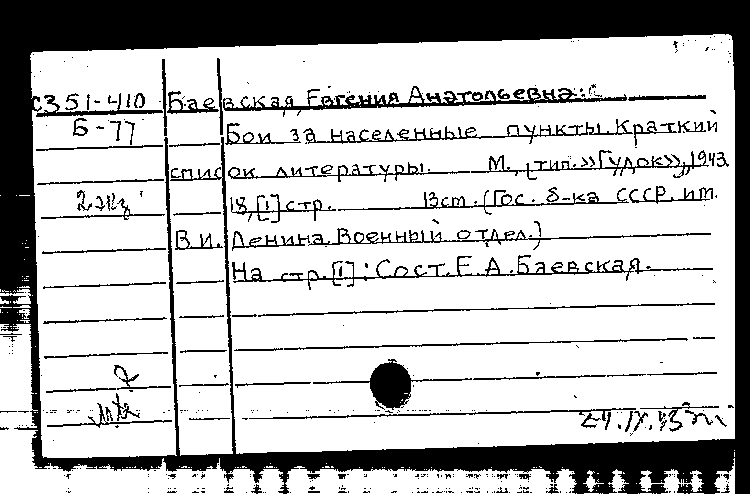 С351-410 Баевская, Евгения Анатольевна:
Б-77 Бои за населенные пункты. Краткий
список литературы. М., [тип. «Гудок»], 1943.
18, [1] стр. 13 см. (Гос. б-ка СССР. им.
2 экз
В. И. Ленина. Военный отдел.)
На стр. [1]: Сост. Е. А. Баевская.
24.IX.43